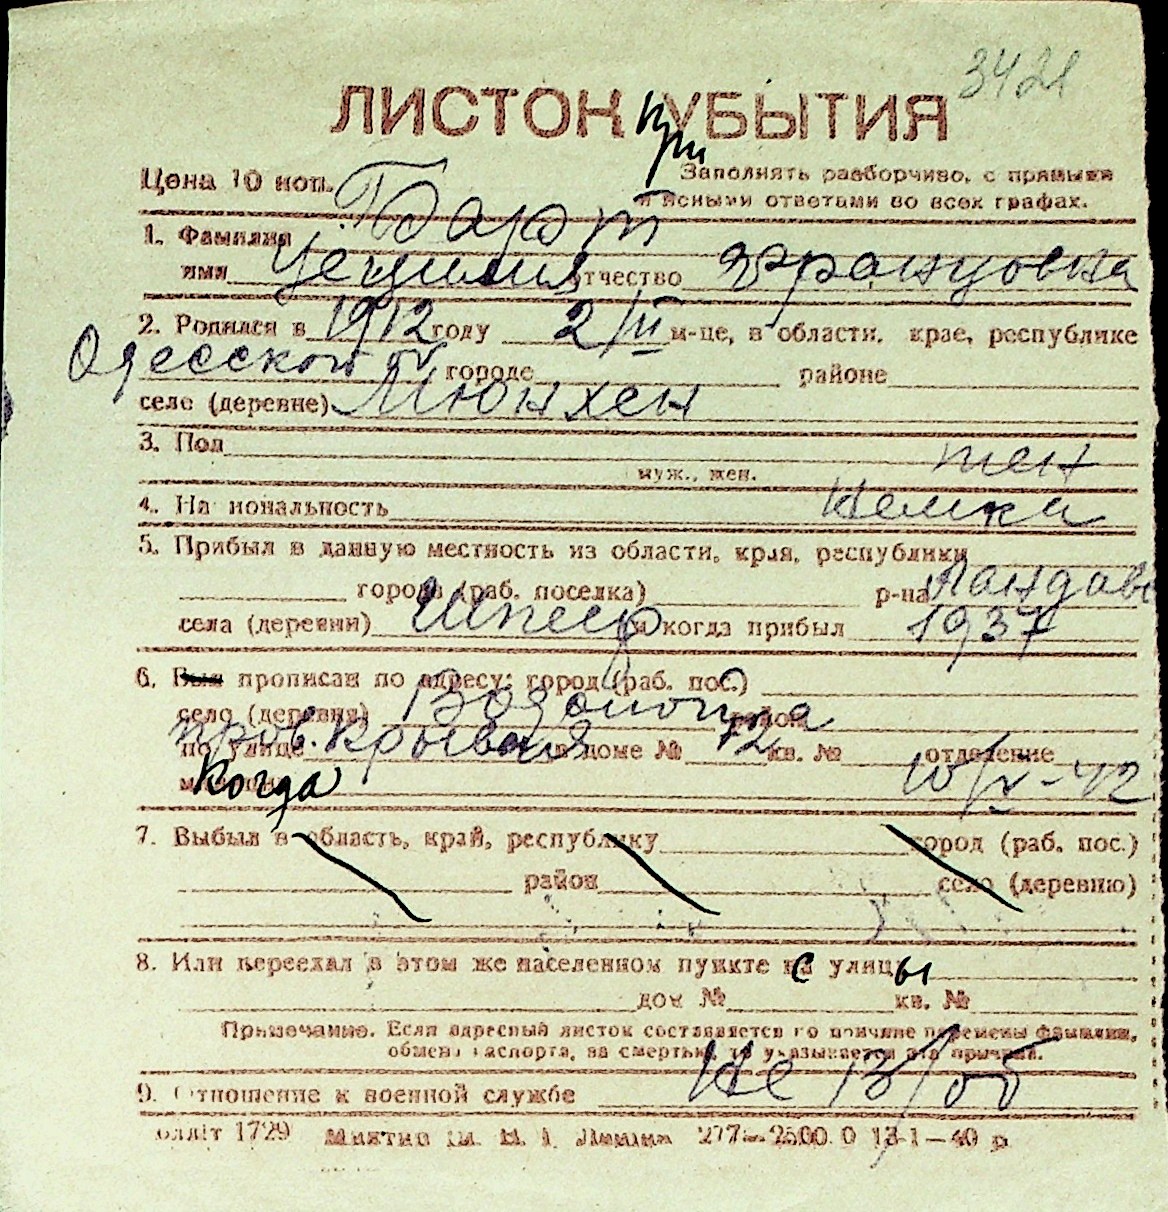 3421
ЛИСТОК при УБЫТИЯ
Цена 10 коп.
Заполнять разборчиво, с прямыми
и ясными ответами во всех графах.
1. Фамилия Гбарт
имя Цецилия отчество Францовна
2. Родился в 1912 году 2/II м-це, в области, крае, республике
Одесской городе районе
селе (деревне) Мюнхен
3. Пол жен
муж., жен.
4. Национальность Немка
5. Прибыл в данную местность из области, края, республики
города (раб. поселка) р-на Ландавс
села (деревни) Шпеер и когда прибыл 1937
6. Был прописан по адресу: город (раб. пос.)
село (деревня) Водопойна район
по улице пров. Кривая в доме № 12 кв. № отделение
Когда 10/IX-42
7. Выбыл в область, край, республику город (раб. пос.)
район село (деревню)
8. Или переехал в этом же населенном пункте с улицы
дом № кв. №
Примечание. Если адресный листок составляется по причине перемены фамилии,
обмена паспорта, за смертью, то указывается эта причина.
9. Отношение к военной службе Не в/об
1729 277 2500.0 13-1-40 р